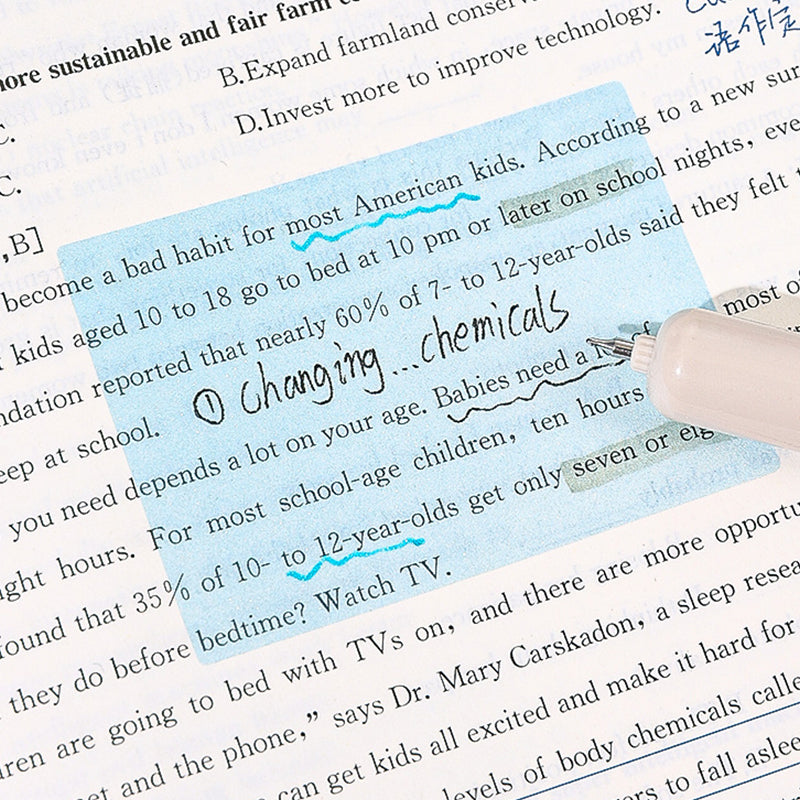 more sustainable and fair farm
B.Expand farmland conserv
D.Invest more to improve technology.
语作定
C.
C.
,B]
become a bad habit for most American kids. According to a new sur
kids aged 10 to 18 go to bed at 10 pm or later on school nights, eve
ndation reported that nearly 60% of 7- to 12-year-olds said they felt
eep at school.
① changing...chemicals
most of
you need depends a lot on your age. Babies need a l of
ight hours. For most school-age children, ten hours
found that 35% of 10- to 12-year-olds get only seven or eig
they do before bedtime? Watch TV.
dren are going to bed with TVs on, and there are more opportu
et and the phone,” says Dr. Mary Carskadon, a sleep resea
can get kids all excited and make it hard for
levels of body chemicals calle
ors to fall aslee